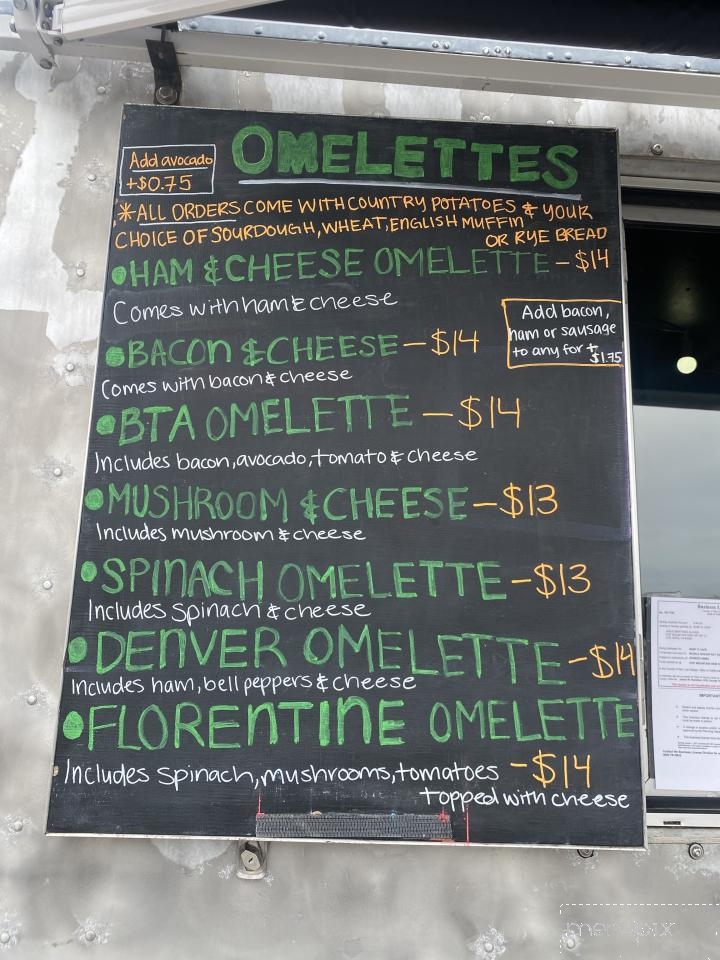 OMELETTES
Add avocado
+$0.75
*ALL ORDERS COME WITH COUNTRY POTATOES & YOUR
CHOICE OF SOURDOUGH, WHEAT, ENGLISH MUFFIN
OR RYE BREAD
•HAM & CHEESE OMELETTE-$14
Comes with ham & cheese
Add bacon,
ham or sausage
to any for +
$1.75
•BACON & CHEESE-$14
Comes with bacon & cheese
•BTA OMELETTE-$14
Includes bacon, avocado, tomato & cheese
•MUSHROOM & CHEESE-$13
Includes mushroom & cheese
•SPINACH OMELETTE-$13
Includes Spinach & cheese
•DENVER OMELETTE-$14
Includes ham, bell peppers & cheese
•FLORENTINE OMELETTE
Includes Spinach, mushrooms, tomatoes -$14
topped with cheese